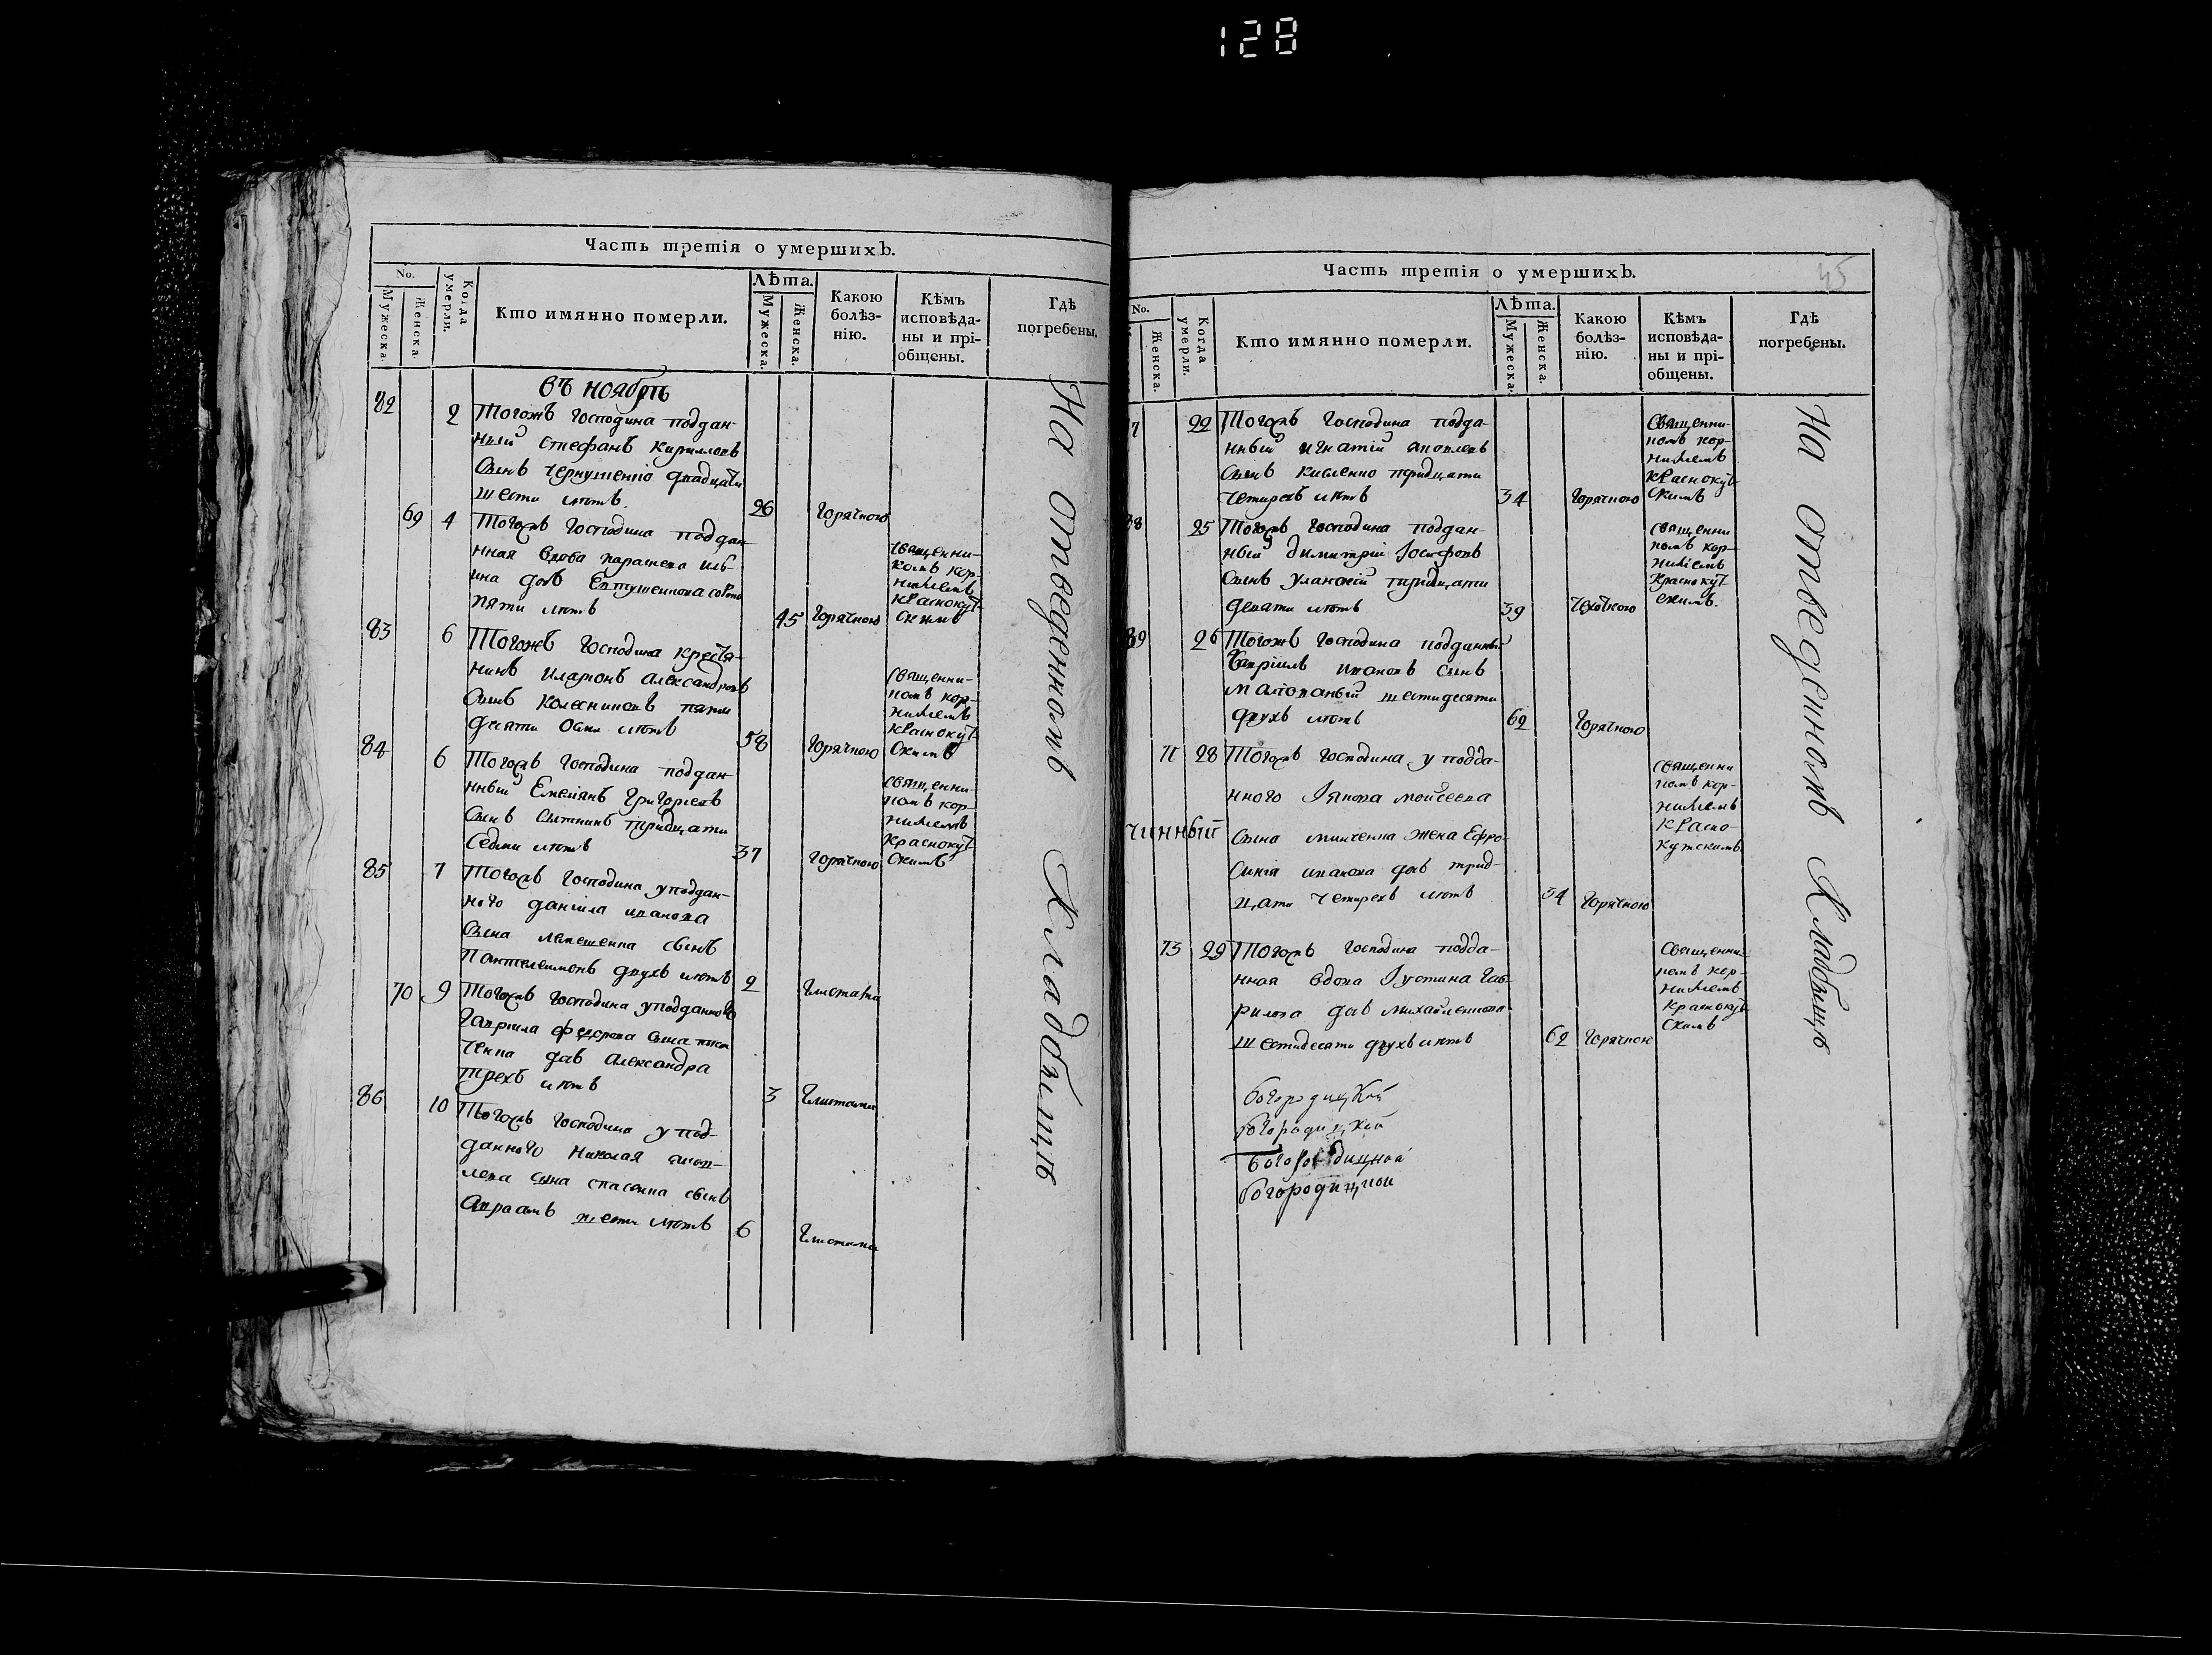 128
Часть третія о умершихъ.
No.
Мужеска.
Женска.
Когда умерли.
Кто имянно померли.
Лѣта.
Мужеска.
Женска.
Какою болѣз-
нію.
Кѣмъ
исповѣда-
ны и прі-
общены.
Гдѣ
погребены.
въ ноябрѣ
82 2 Тогожъ Господина поддан-
ный Стефанъ Кириловъ
Сынъ Чернушенко двадцати
шести лѣтъ. 26 Горячкою
69 4 Тогожъ Господина поддан-
нная вдова Параскева Иль-
ина дочь Евтушенкова сорока
пяти лѣтъ 45 Горячкою
Священни-
комъ Кор-
ниліемъ
Краснокут-
скимъ
83 6 Тогожъ Господина крестья-
нинъ Иларіонъ Александровъ
Сынъ Колесниковъ пяти
десяти осми лѣтъ 58 Горячкою
Священни-
комъ Кор-
ниліемъ
Краснокут-
скимъ
84 6 Тогожъ Господина поддан-
нный Емеліянъ Григорьевъ
Сынъ Сытникъ тридцати
Седми лѣтъ 37 Горячкою
Священни-
комъ Кор-
ниліемъ
Краснокут-
скимъ
85 7 Тогожъ Господина у поддан-
ного Даніила Иванова
Сына Лемешенка сынъ
Пантелеимонъ двухъ лѣтъ 2 Глистами
70 9 Тогожъ Господина у подданного
Гавріила Федорова Сына
ченка дочь Александра
трехъ лѣтъ 3 Глистами
86 10 Тогожъ Господина у под-
данного Николая Яков-
лева Сына Спасенка сынъ
Авраамъ шести лѣтъ 6 Глистами
На отведенномъ Кладбищѣ
45
Часть третія о умершихъ.
No.
Женска.
Когда умерли.
Кто имянно померли.
Лѣта.
Мужеска.
Женска.
Какою
болѣз-
нію.
Кѣмъ
исповѣда-
ны и прі-
общены.
Гдѣ
погребены.
7 22 Тогожъ Господина подда-
нный Игнатій Яковлевъ
Сынъ Кисленко тридцати
четырехъ лѣтъ 34 Горячкою
Священни-
комъ Кор-
ниліемъ
Краснокут-
скимъ
88 25 Тогожъ Господина поддан-
ный Димитрій Іосифовъ
Сынъ Уланскій тридцати
девяти лѣтъ 39 Чехоткою
Священни
комъ Кор-
ниліемъ
Краснокут-
скимъ.
89 26 Тогожъ Господина подданный
Гавріилъ Ивановъ Сынъ
Маліованый шестидесяти
двухъ лѣтъ 62 Горячкою
71 28 Тогожъ Господина у подда-
нного Іякова Моисеева
чинный
Сына Минченка жена Ефро-
синія Иванова дочь трид-
цати четырехъ лѣтъ 34 Горячкою
Священни
комъ Кор-
ниліемъ
Красно-
кутскимъ
73 29 Тогожъ Господина подда-
нная вдова Іустина Гав-
рилова дочь Михайленкова
шестидесяти двухъ лѣтъ 62 Горячкою
Священни-
комъ Кор-
ниліемъ
Краснокут-
скимъ
На отведенномъ Кладбищѣ
богородицкой
богородицкой
богородицкой